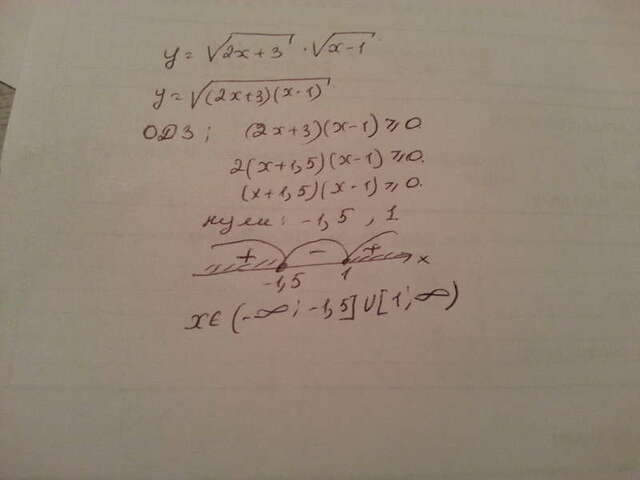 y = √(2x+3) · √(x-1)
y = √((2x+3)(x-1))
ОДЗ; (2x+3)(x-1) ≥ 0.
2(x+1,5)(x-1) ≥ 0.
(x+1,5)(x-1) ≥ 0.
нули: -1,5, 1
+ - + x
-1,5 1
x ∈ (-∞; -1,5] ∪ [1; ∞)